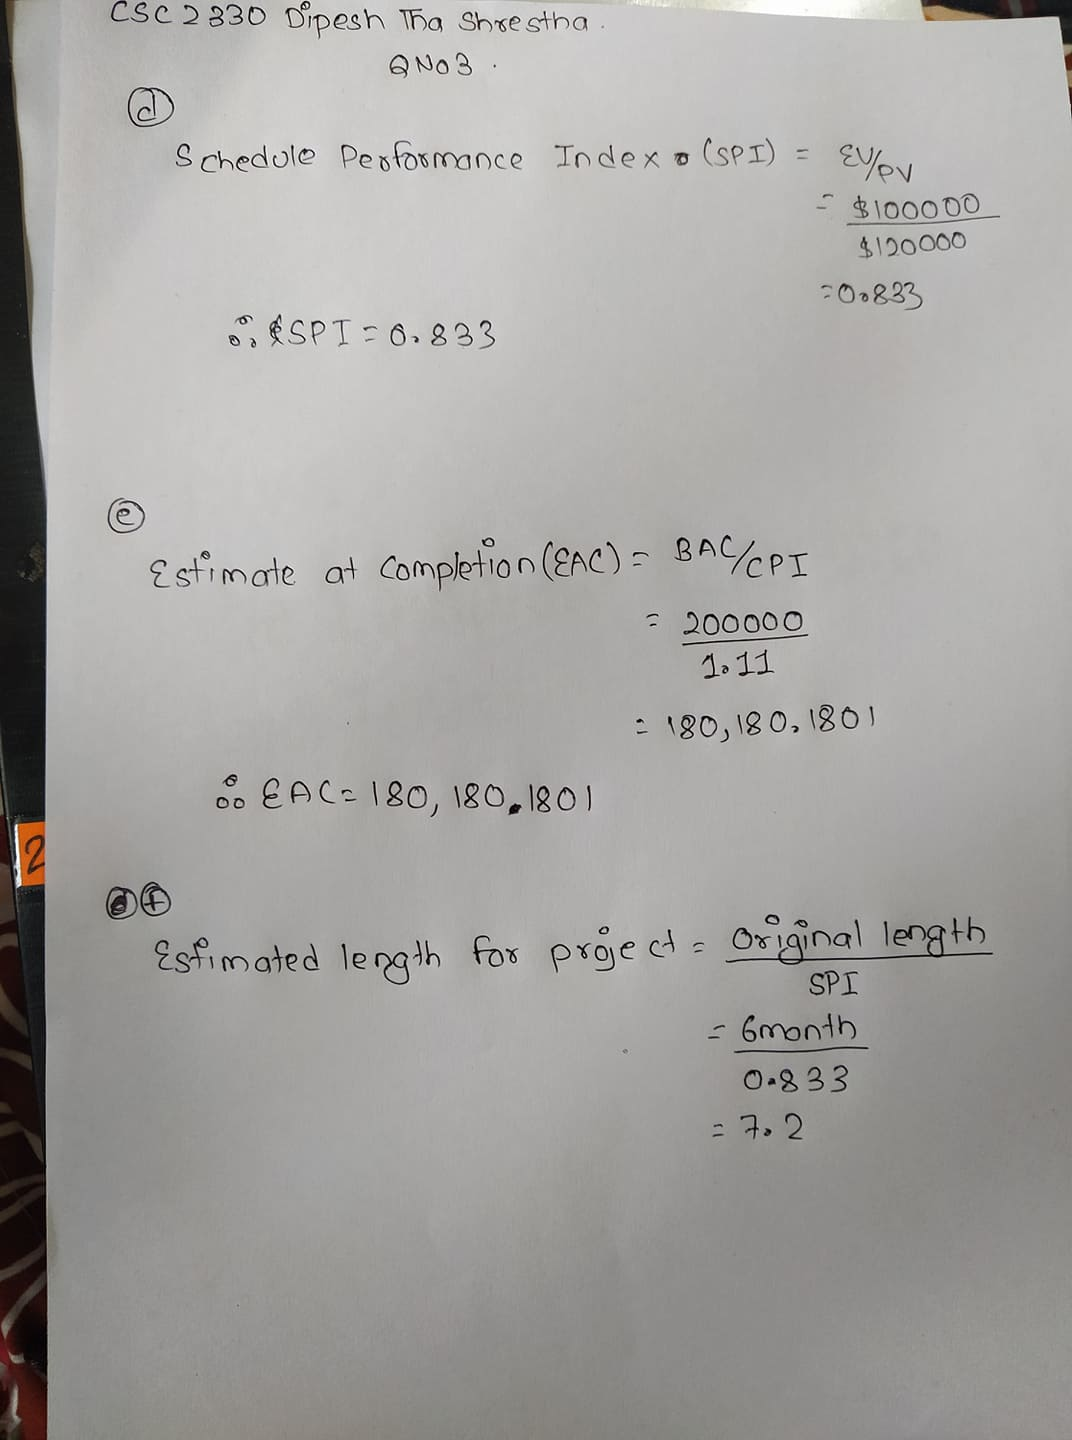 CSC 2330 Dipesh Tha Shrestha.
Q NO 3.
(d)
Schedule Performance Index (SPI) = EV/PV
= $100000
$120000
=0.833
∴ SPI = 0.833
(e)
Estimate at Completion (EAC) = BAC/CPI
= 200000
1.11
= 180,180.1801
∴ EAC = 180,180.1801
2
(f)
Estimated length for project = Original length
SPI
= 6month
0.833
= 7.2